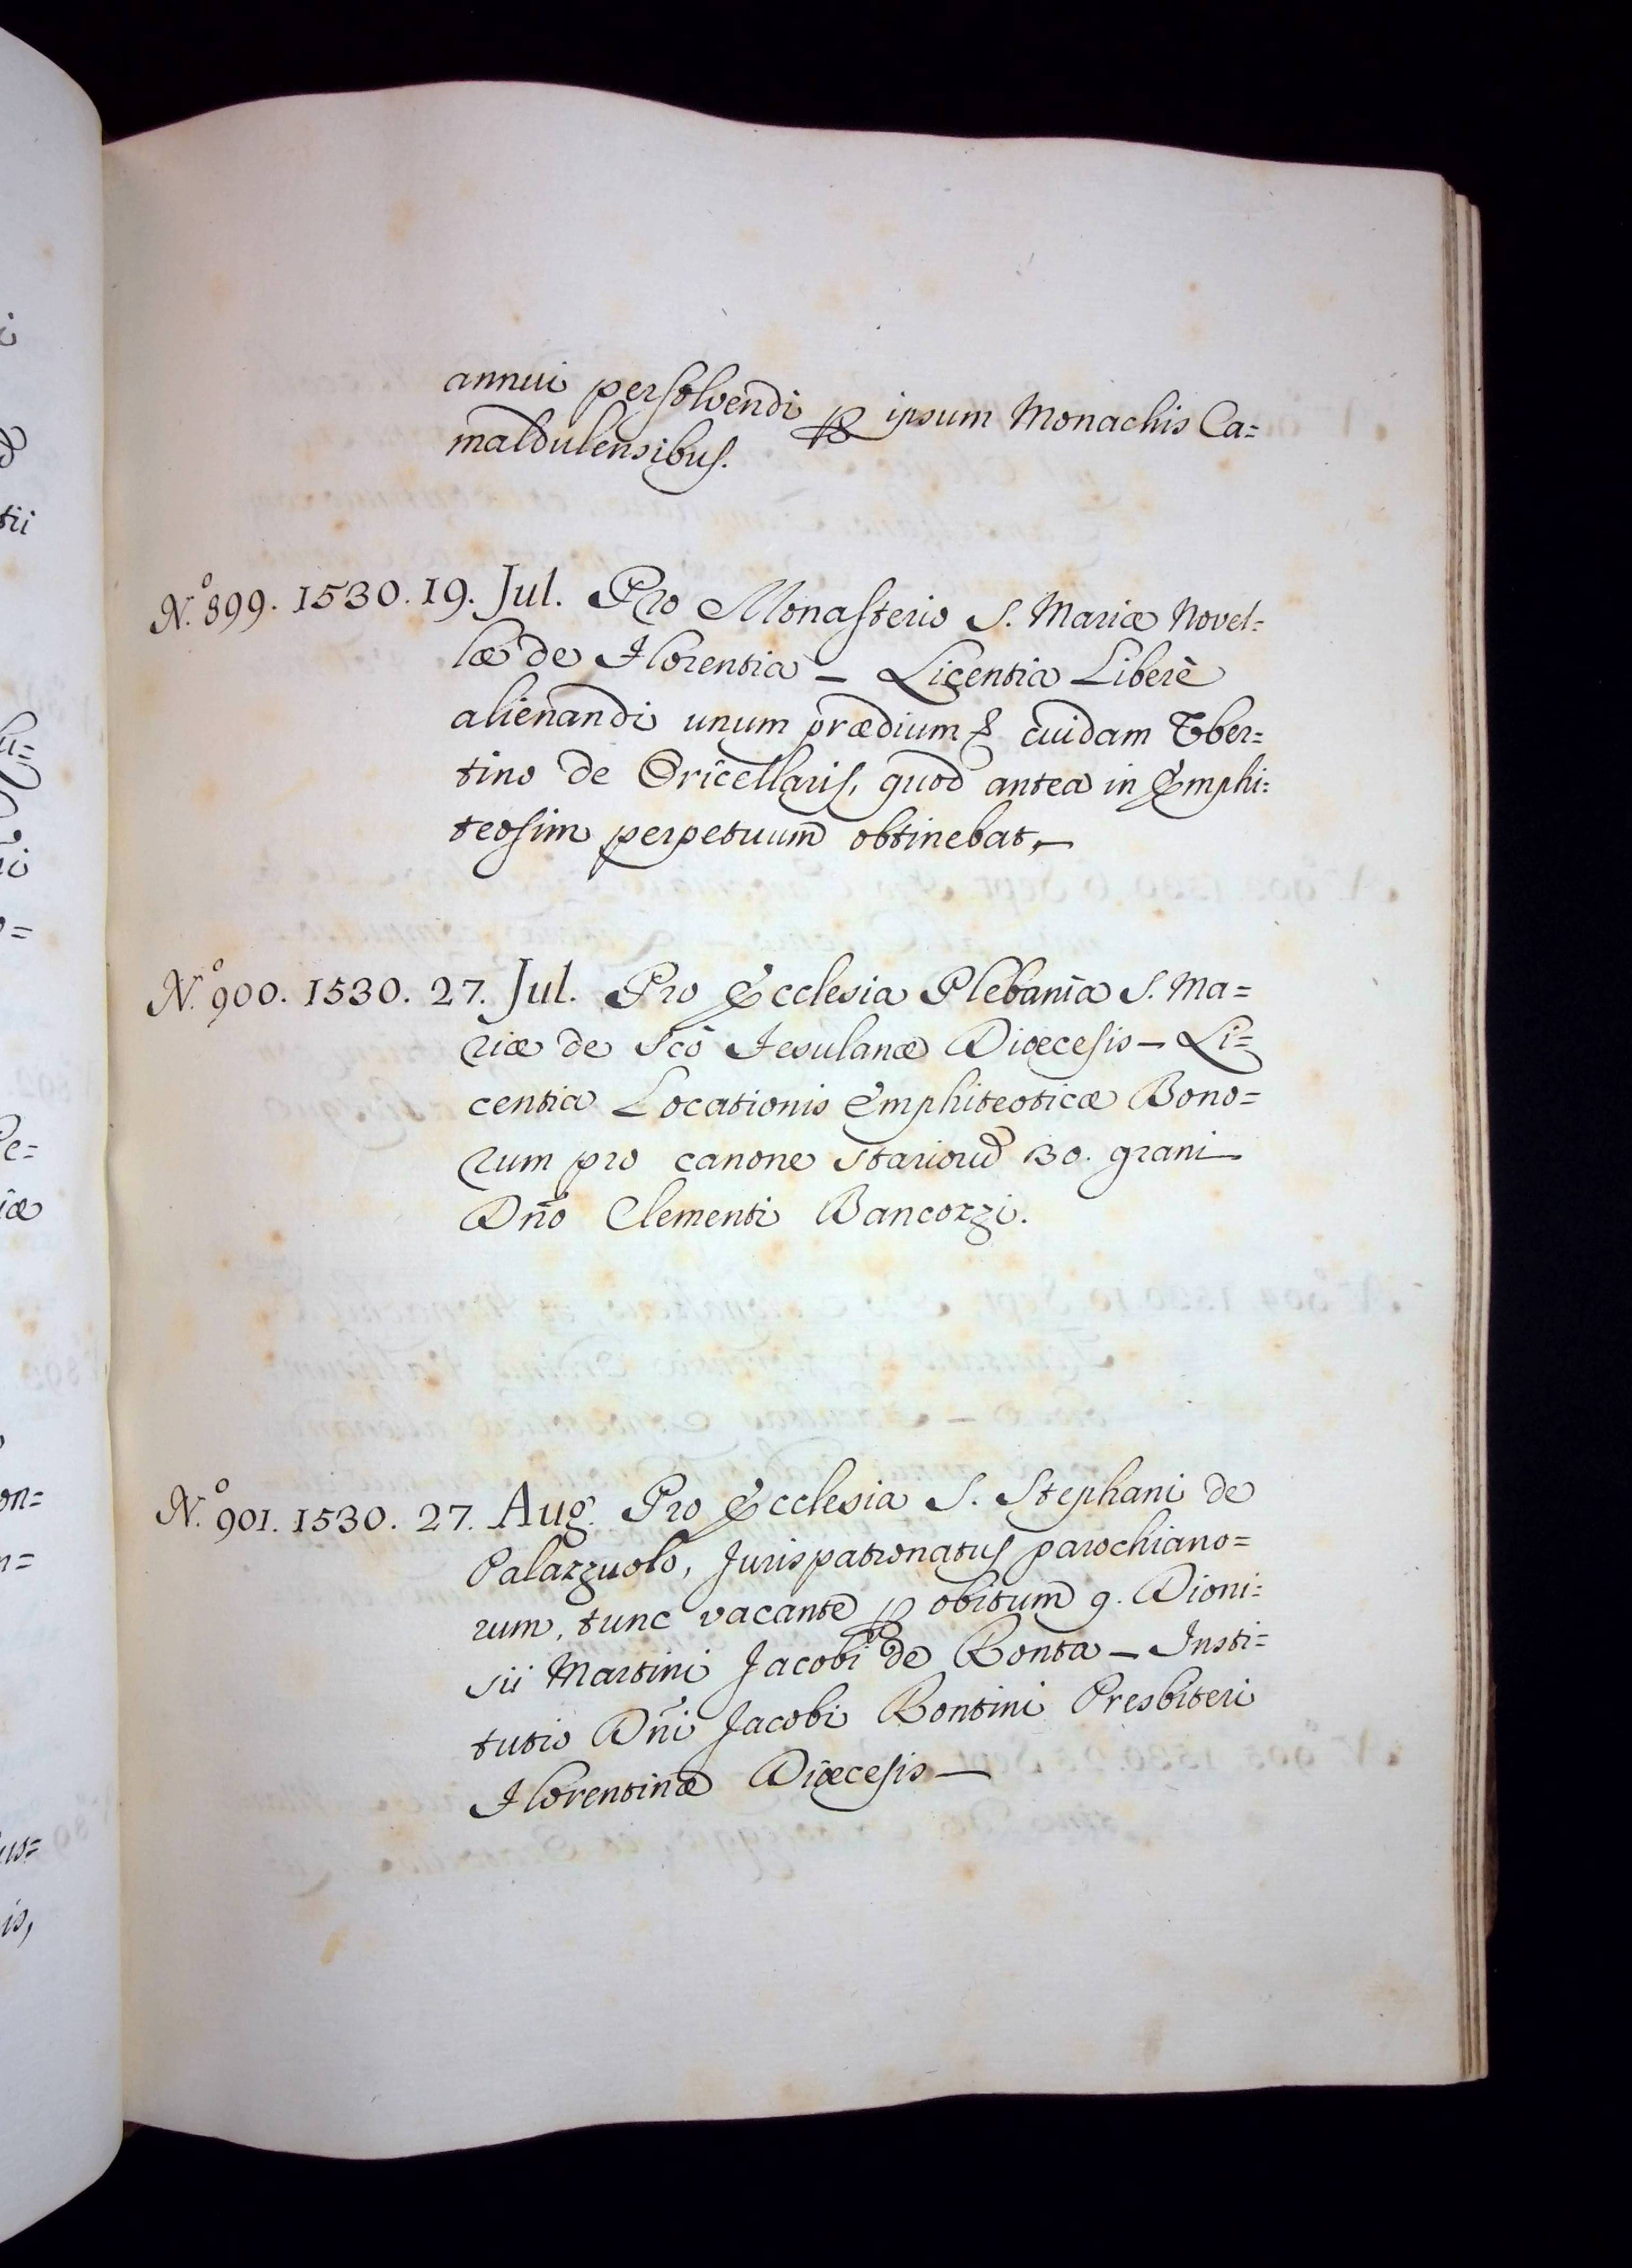 annui persolvendi ꝑ ipsum Monachis Ca=
maldulensibus.
N.º 899. 1530. 19. Jul. Pro Monasterio S. Mariæ Novel=
læ de Florentia – Licentia Liberè
alienandi unum prædium & cuidam Uber=
tino de Oricellaris, quod antea in Emphi=
teosim perpetuum obtinebat, –
N.º 900. 1530. 27. Jul. Pro Ecclesia Plebania S. Ma=
riæ de Scò Fesulanæ Diœcesis – Li=
centia Locationis Emphiteoticæ Bono=
rum pro canone Stariorũ 30. grani
Dño Clementi Bancozzi.
N.º 901. 1530. 27. Aug. Pro Ecclesia S. Stephani de
Palazzuolo, Jurispatronatus parochiano=
rum, tunc vacante ꝑ obitum q. Dioni=
sii Martini Jacobi de Ronta – Insti=
tutio Dñi Jacobi Rontini Presbiteri
Florentinæ Diœcesis –